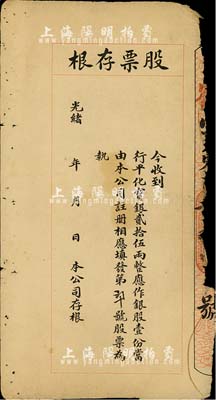 上海陽明拍賣
股票存根
今收到
行平化寶銀貳拾伍兩整應作銀股壹份當
由本公司註冊相應填發第 號股票為
執
光緒 年 月 日 本公司存根
號
上海陽明拍賣